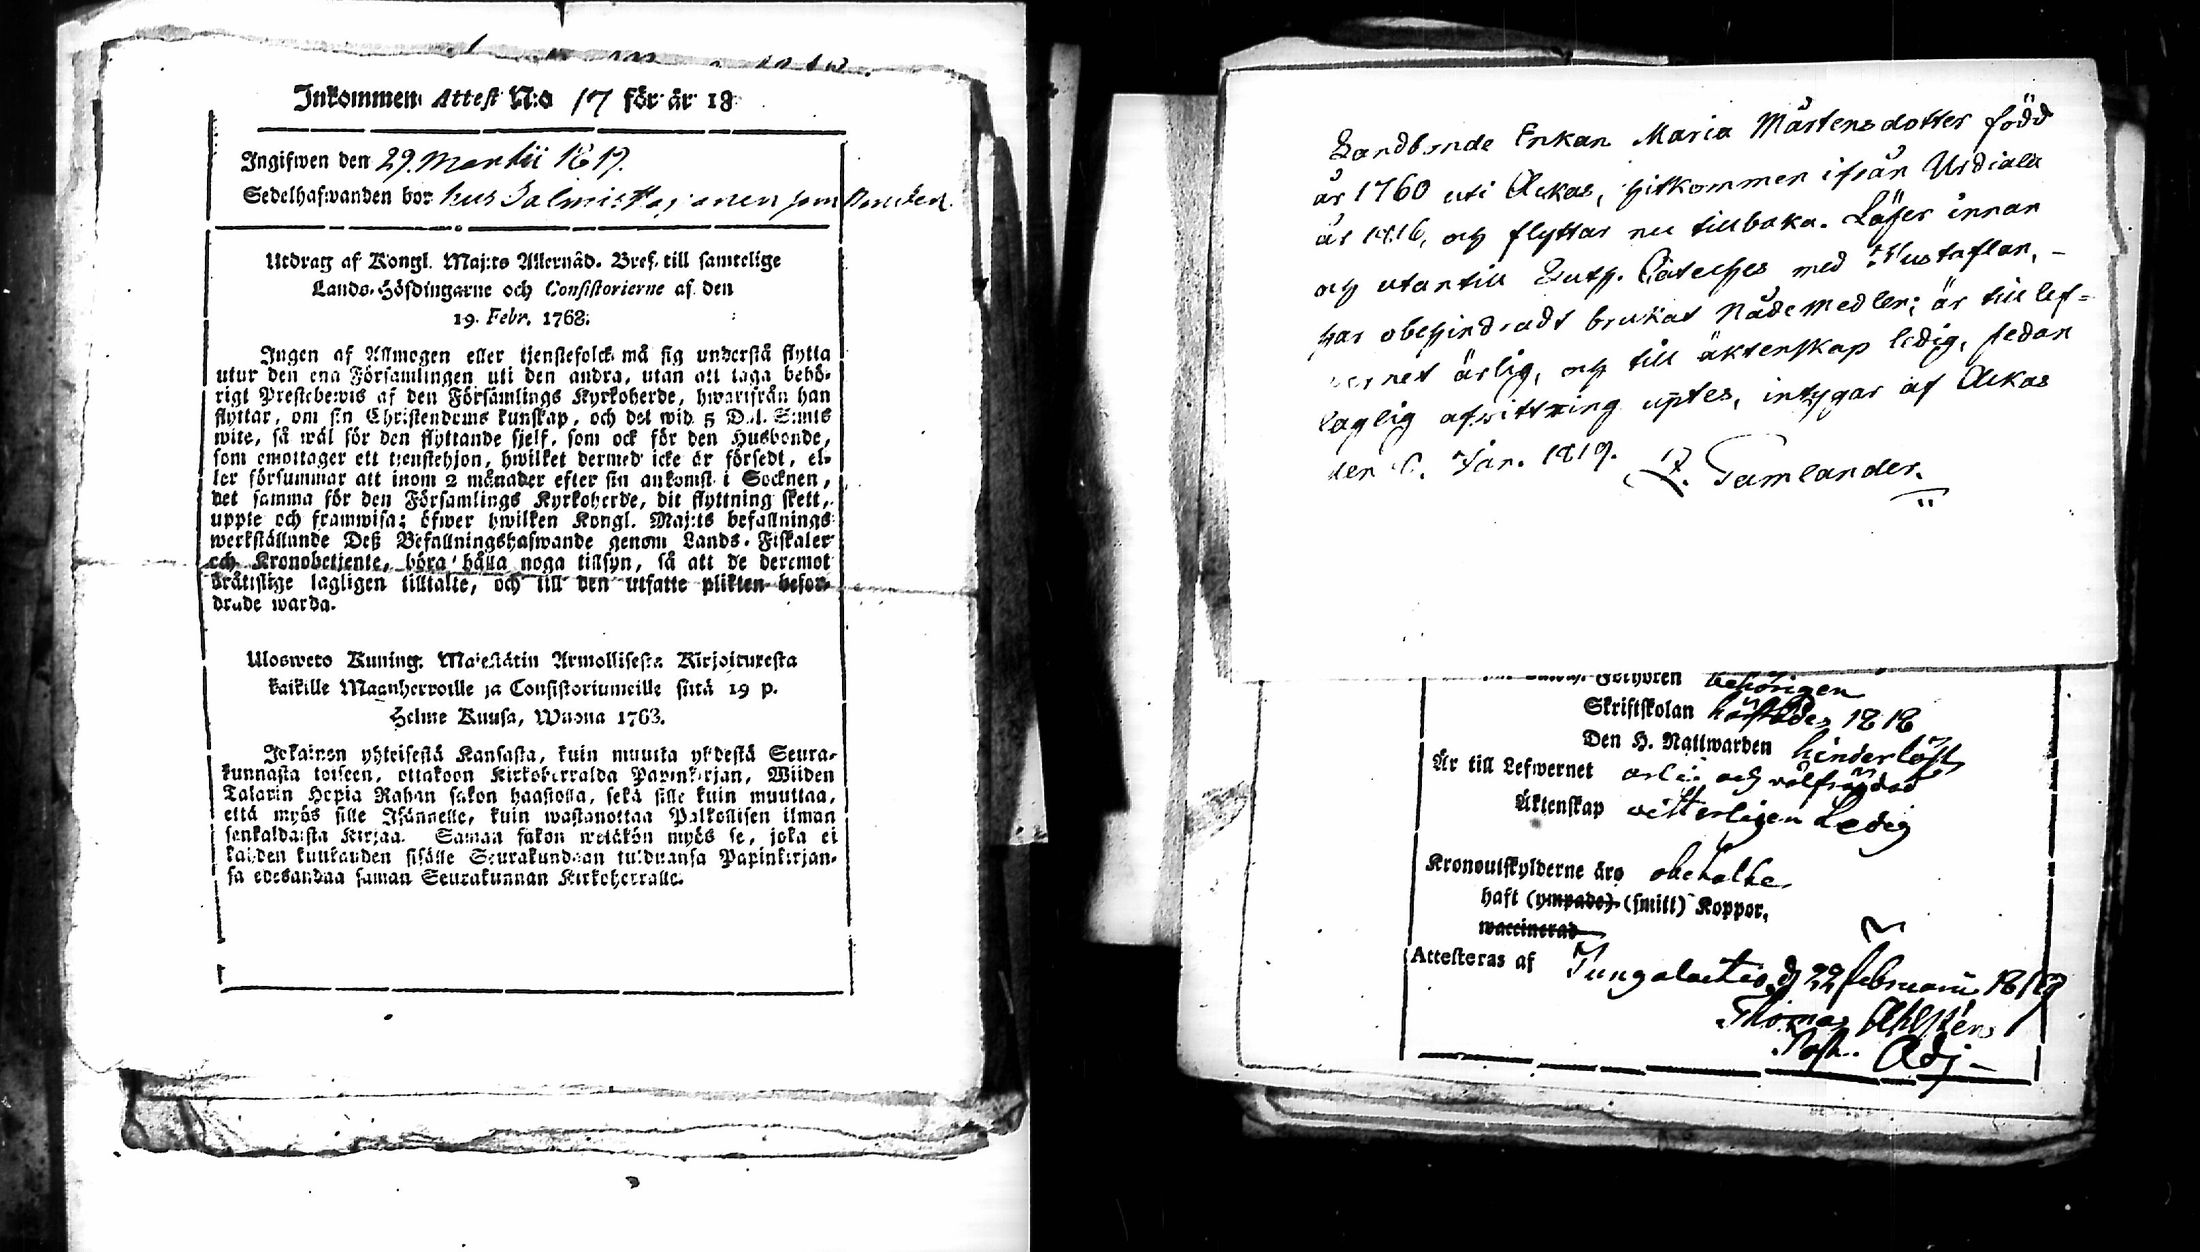 Inkommen Attest N:o 17 för år 18
Ingifwen den 29. Martii 1819.
Sedelhafwanden bor hos Salmis
Utdrag af Kongl. Maj:ts Allernåd. Bref till samtelige
Lands-Höfdingarne och Consistorierne af den
19. Febr. 1763.
Ingen af Allmogen eller tjenstefolck må sig understå flytta
utur den ena Församlingen uti den andra, utan att taga behö-
rigt Prestebewis af den Församlings Kyrkoherde, hwarifrån han
flyttar, om sin Christendoms kunskap, och det wid 5 Dal. S:mts
wite, så wäl för den flyttande sjelf, som ock för den Husbonde,
som emottager ett tjenstehjon, hwilket dermed icke är försedt, el-
ler försummar att inom 2 månader efter sin ankomst i Socknen,
det samma för den Församlings Kyrkoherde, dit flyttning skett,
uppte och framwisa; öfwer hwilken Kongl. Maj:ts befallnings
werkställande Deß Befallningshafwande genom Lands-Fiskaler
och Kronobetjente, böra hålla noga tillsyn, så att de deremot
bråttslige lagligen tilltalte, och till den utsatte plikten befor-
drade warda.
Ulosweto Kuning. Majestätin Armollisesta Kirjoituxesta
kaikille Maanherroille ja Consistoriumeille siitä 19 p.
Helme Kuusa, Wuona 1763.
Jokainen yhteisestä Kansasta, kuin muutta yhdestä Seura-
kunnasta toiseen, ottakoon Kirkoherralda Papinkirjan, Wiiden
Talarin Hopia Rahan sakon haastolla, sekä sille kuin muuttaa,
että myös sille Isännelle, kuin wastanottaa Palkollisen ilman
senkaldaista Kirjaa. Saman sakon wetäkön myös se, joka ei
kahden kuukauden sisälle Seurakundaan tulduansa Papinkirjan-
sa edesandaa saman Seurakunnan Kirkoherralle.
Landbonde Enkan Maria Mårtensdotter född
år 1760 uti Ackas, hitkommen ifrån Urdiala
år 1816, och flyttar nu tillbaka. Läser innan
och utantill Luth. Cateches med Hustaflan, -
har obehindradt brukat Nådemedlen; är till lef=
wernet ärlig, och till äktenskap ledig, sedan
laglig afwittring uptes, intygar af Ackas
den Jan. 1819. Z. Gamlander.
Förhören behörigen
Skriftskolan 1818
Den H. Nattwarden hinderlöst
Är till Lefwernet ärlig och wälfrägdad
Äktenskap witterligen Ledig
Kronoutskylderne äro obetalte.
haft (ympade) (smitt) Koppor,
waccinerad
Attesteras af Tungalaitio d 22 februarii 1819
Thomas Ahlstén
Past. Adj-